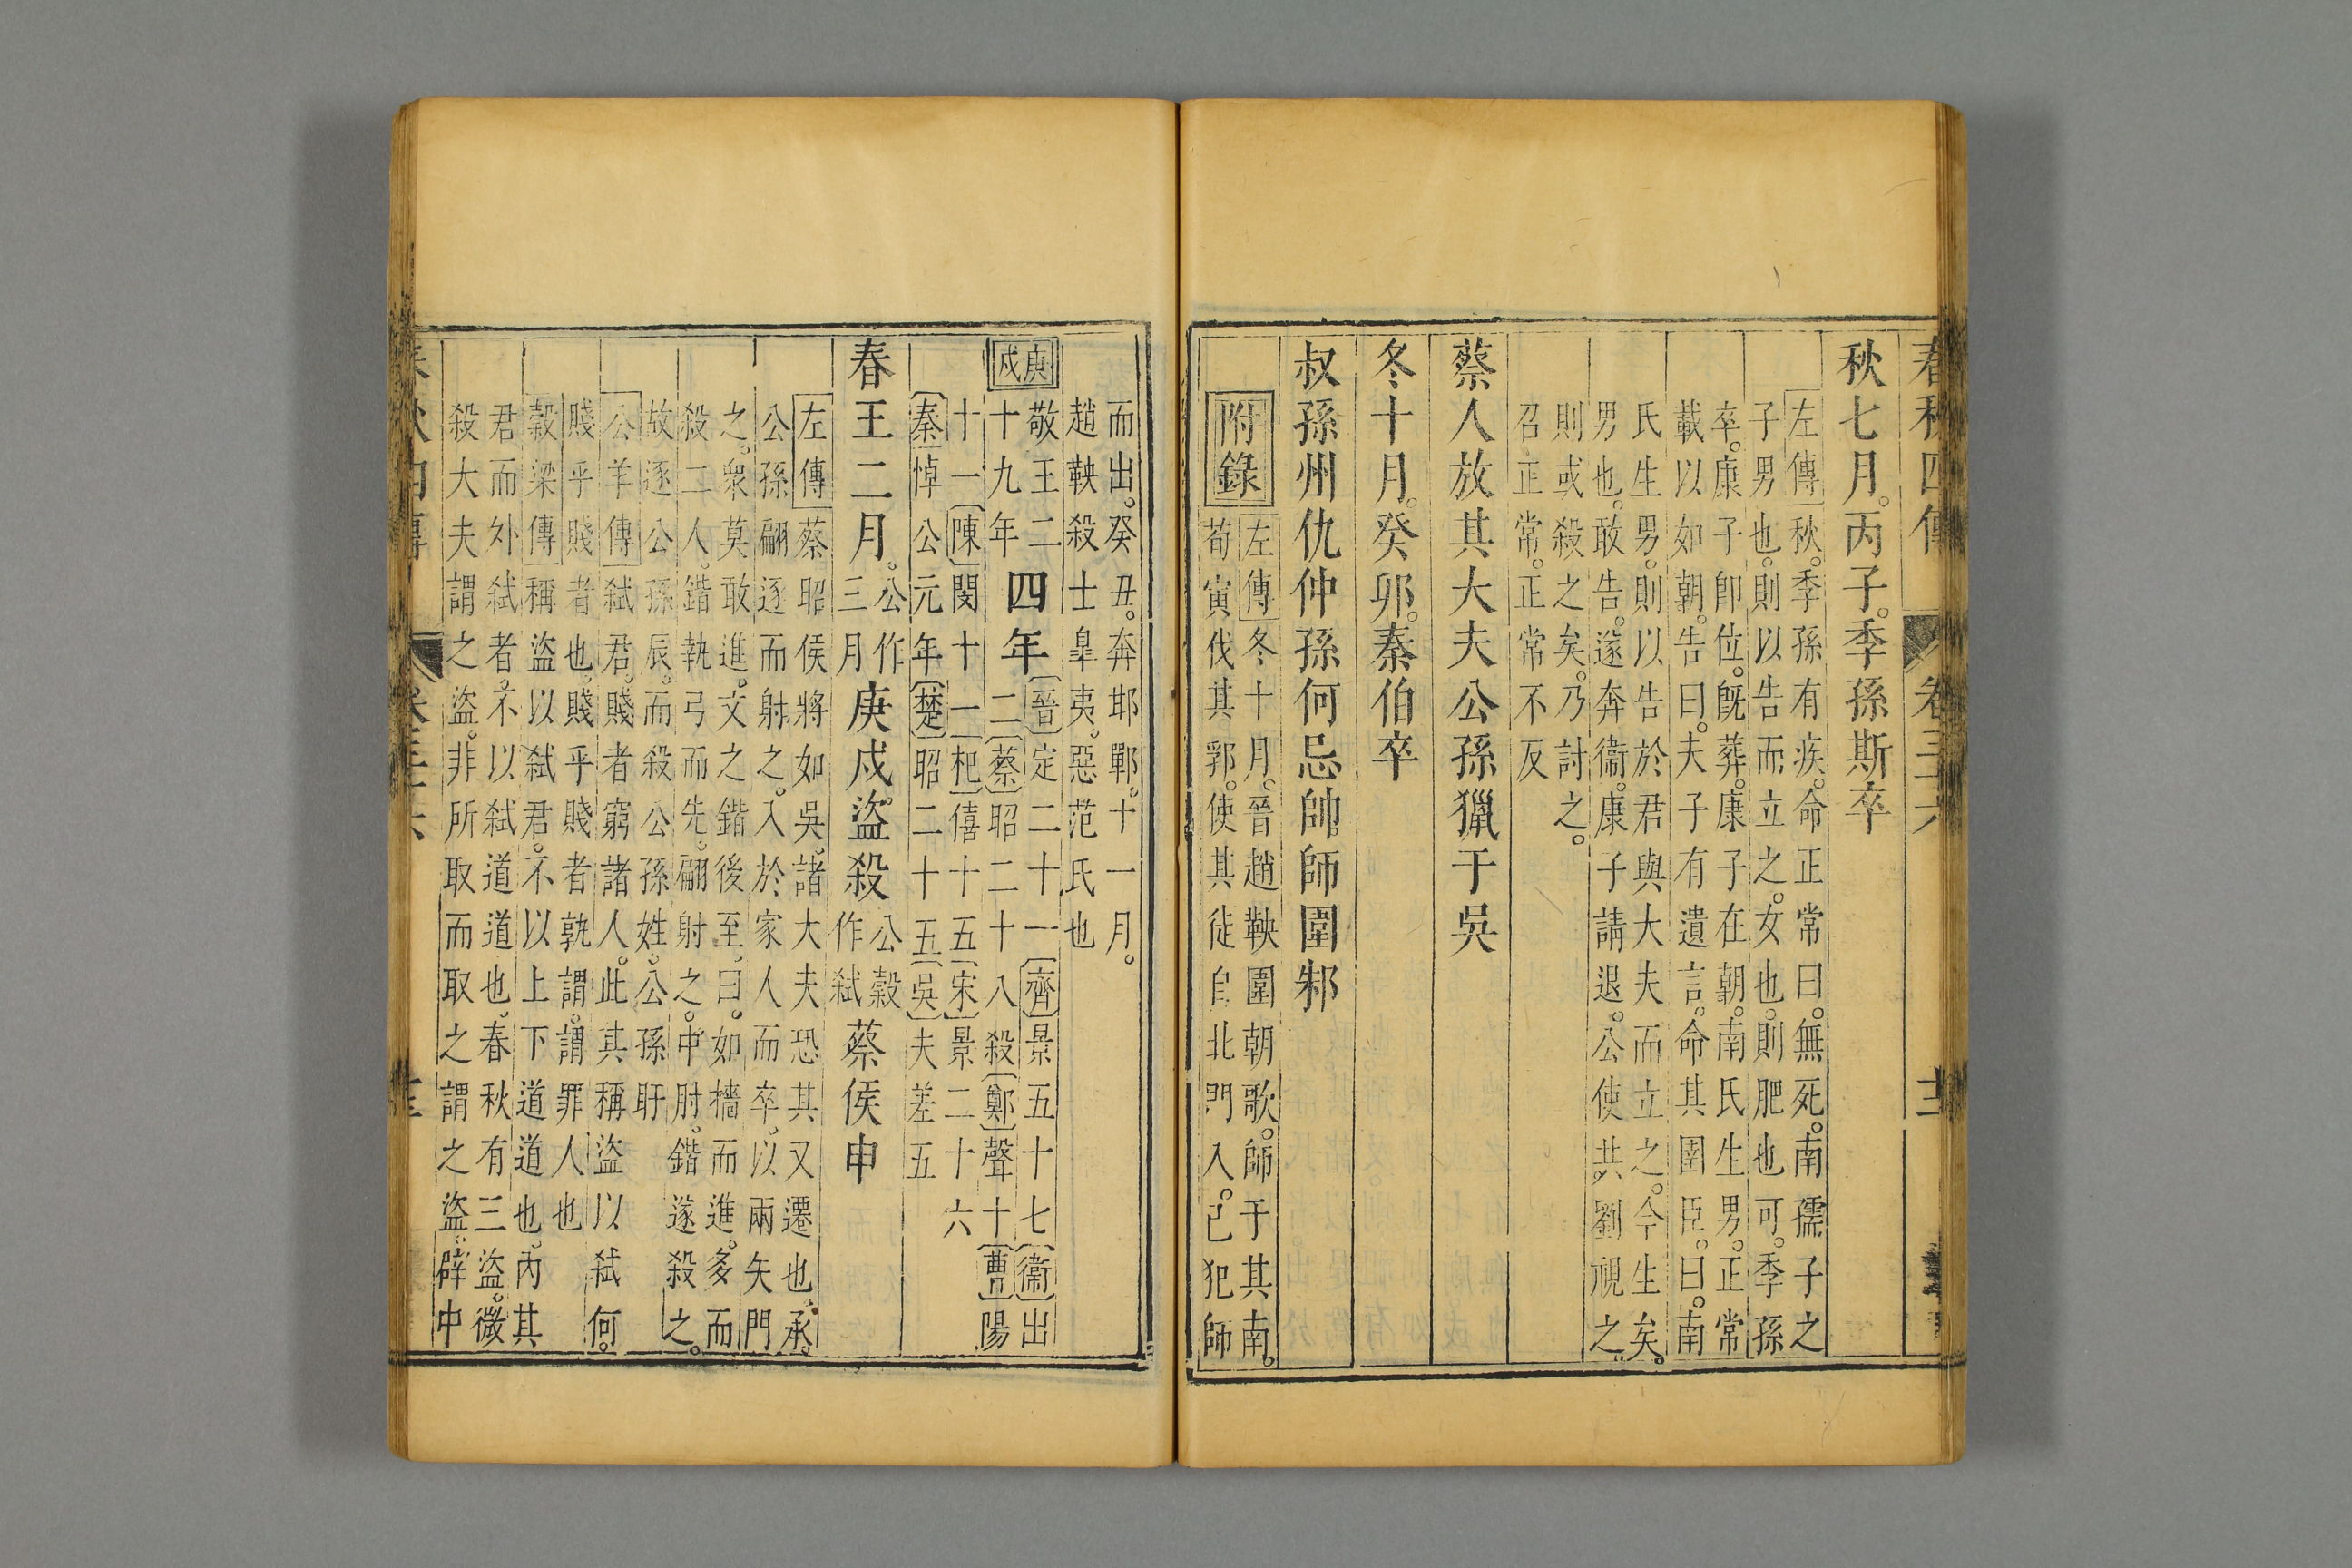 春秋四傳 卷三十六 十二
秋七月。丙子。季孫斯卒
左傳秋。季孫有疾。命正常曰。無死。南孺子之
子男也。則以告而立之。女也。則肥也可。季孫
卒。康子即位。既葬。康子在朝。南氏生男。正常
載以如朝。告曰。夫子有遺言。命其圉臣。曰。南
氏生男。則以告於君與大夫而立之。今生矣。
男也。敢告。遂奔衞。康子請退。公使共劉視之。
則或殺之矣。乃討之。
召正常。正常不反
蔡人放其大夫公孫獵于吳
冬十月。癸卯。秦伯卒
叔孫州仇仲孫何忌帥師圍邾
附錄
左傳冬十月。晉趙鞅圍朝歌。師于其南。
荀寅伐其郛。使其徒自北門入。己犯師
而出。癸丑。奔邯鄲。十一月。
趙鞅殺士臯夷。惡范氏也
庚戌
敬王二
十九年
四年
晉定二十一齊景五十七衞出
二蔡昭二十八殺鄭聲十曹陽
十一陳閔十一杞僖十五宋景二十六
秦悼公元年楚昭二十五吳夫差五
春王二月。公作三月庚戌。盜殺公穀作弒蔡侯申
左傳蔡昭侯將如吳。諸大夫恐其又遷也。承。
公孫翩逐而射之。入於家人而卒。以兩矢門
之。衆莫敢進。文之鍇後至。曰。如牆而進。多而
殺二人。鍇執弓而先。翩射之。中肘。鍇遂殺之。
故逐公孫辰。而殺公孫姓。公孫盱
公羊傳弒君。賤者窮諸人。此其稱盜以弒何。
賤乎賤者也。賤乎賤者孰謂。謂罪人也
穀梁傳稱盜以弒君。不以上下道道也。內其
君而外弒者。不以弒道道也。春秋有三盜。微
殺大夫謂之盜。非所取而取之謂之盜。辟中
春秋四傳 卷三十六 十三